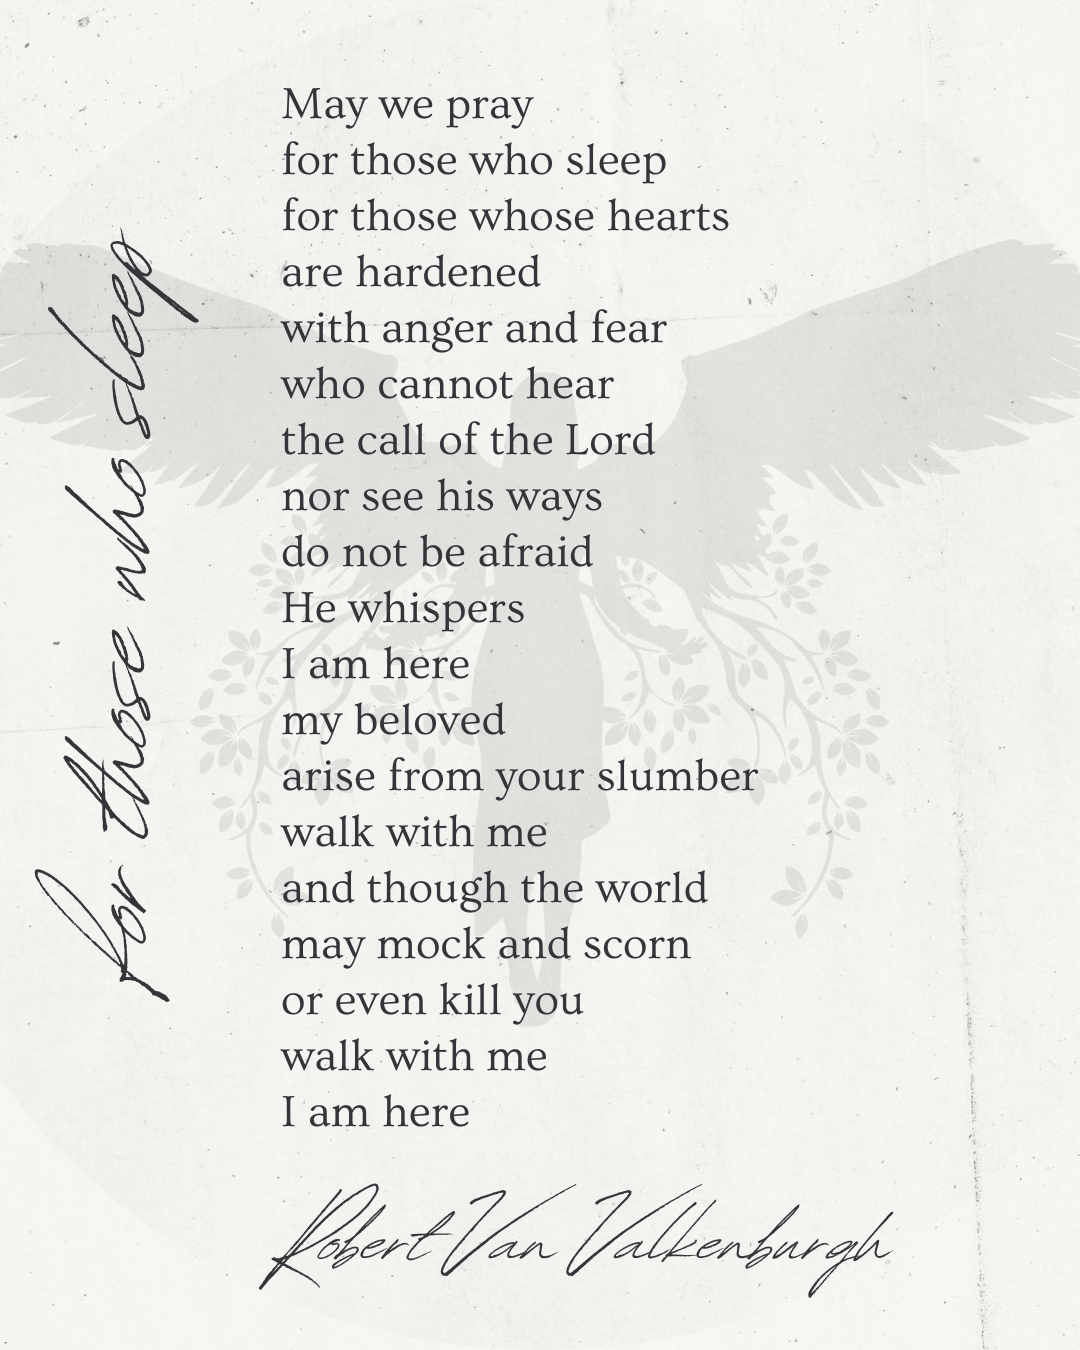 for those who sleep
May we pray
for those who sleep
for those whose hearts
are hardened
with anger and fear
who cannot hear
the call of the Lord
nor see his ways
do not be afraid
He whispers
I am here
my beloved
arise from your slumber
walk with me
and though the world
may mock and scorn
or even kill you
walk with me
I am here
Robert Van Valkenburgh